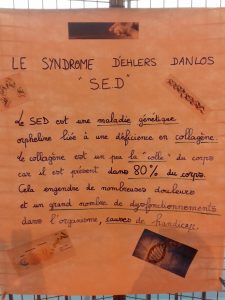 LE SYNDROME DEHLERS DANLOS
"S.E.D"
Le SED est une maladie génétique
orpheline liée à une déficience en collagène.
Le collagène est un peu la "colle" du corps
car il est présent dans 80% du corps.
Cela engendre de nombreuses douleurs
et un grand nombre de dysfonctionnements
dans l'organisme, causes de handicap.